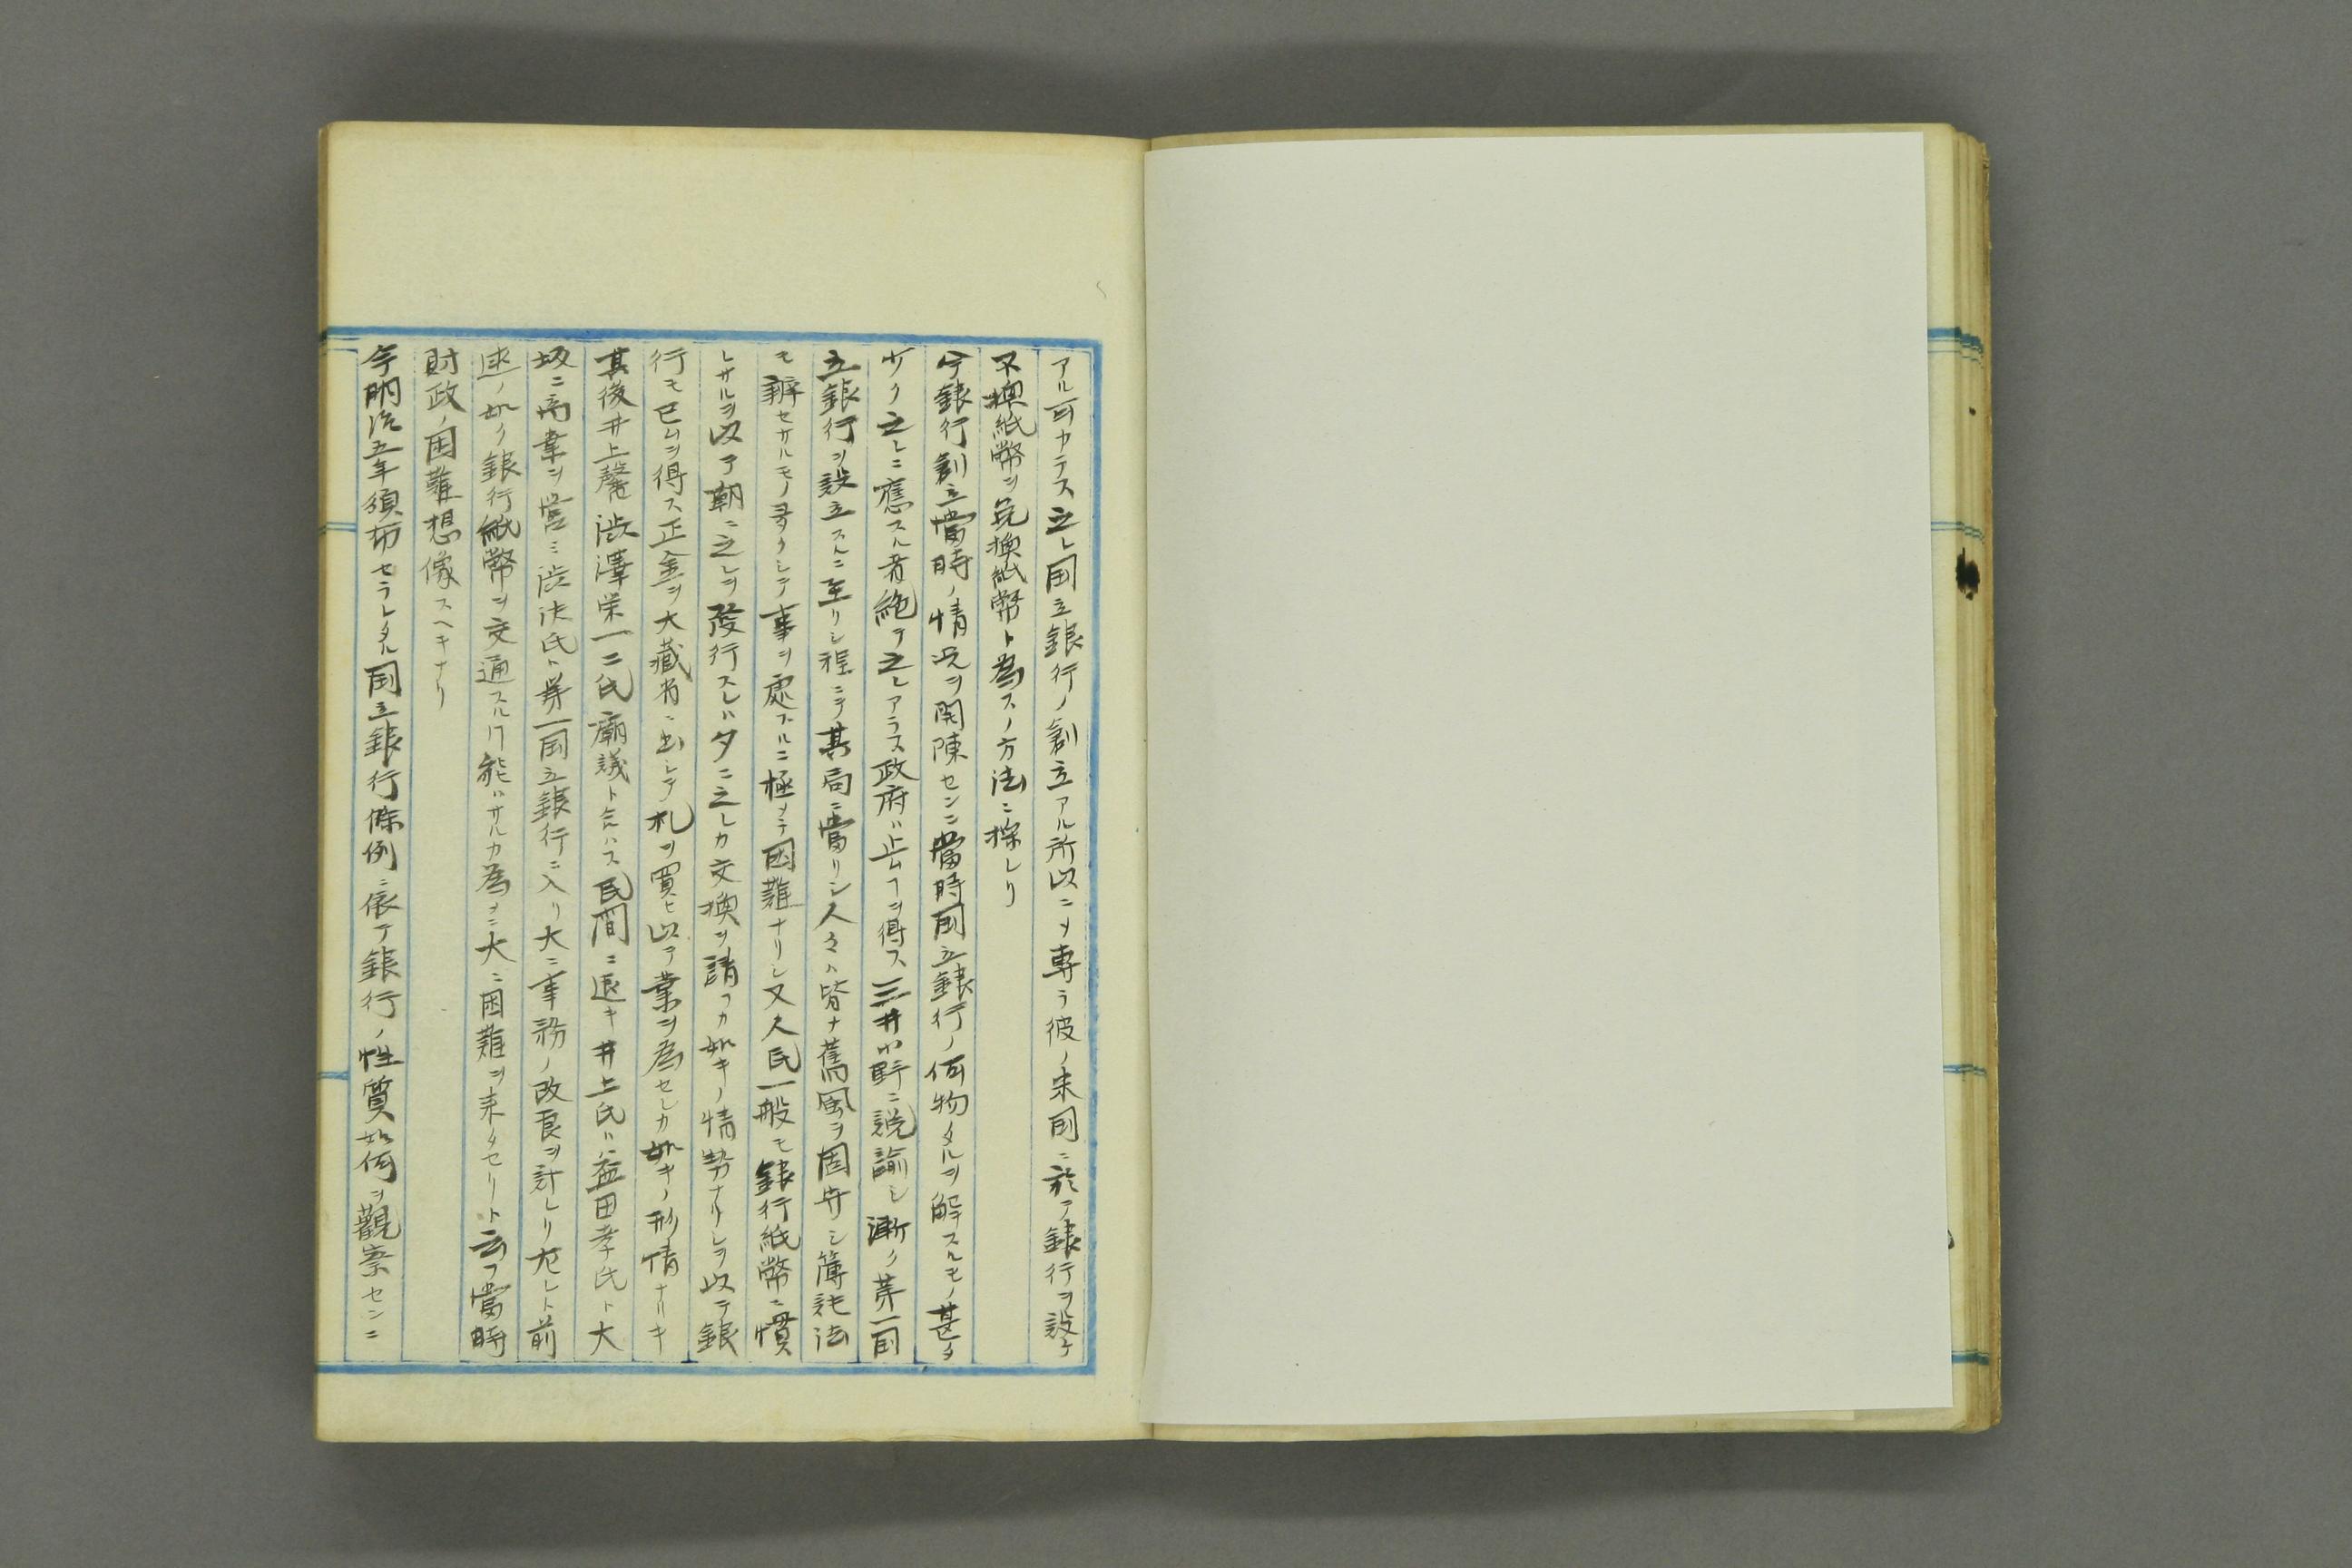 アル可カラス之レ国立銀行ノ創立アル所以ニメ専ラ彼ノ米国ニ於テ銀行ヲ設ケ
不換紙幣ヲ兌換紙幣ト為スノ方法ニ採レリ
今銀行創立當時ノ情况ヲ開陳センニ當時国立銀行ノ何物タルヲ解スルモノ甚タ
少ク之レニ應スル者絶テ之レアラス政府ハ止ムヿヲ得ス三井小野ニ説諭シ漸ク第一国
立銀行ヲ設立スルニ至リシ程ニテ其局ニ當リシ人々ハ皆ナ舊風ヲ固守シ簿記法
モ辨セサルモノ多クシテ事ヲ處スルニ極メテ困難ナリシ又人民一般モ銀行紙幣ニ慣
レサルヲ以テ朝ニ之レヲ發行スレハ夕ニ之レカ交換ヲ請フカ如キノ情勢ナリシヲ以テ銀
行モ已ムヲ得ス正金ヲ大藏省ニ出シテ札ヲ買ヒ以テ業ヲ為セシカ如キノ形情ナリキ
其後井上馨渋澤栄一二氏廟議ト合ハス民間ニ退キ井上氏ハ益田孝氏ト大
坂ニ商業ヲ営ミ渋沢氏ト第一国立銀行ニ入リ大ニ事務ノ改良ヲ計レリ尤レト前
述ノ如ク銀行紙幣ヲ交通スルヿ能ハサルカ為メニ大ニ困難ヲ来タセリト云フ當時
財政ノ困難想像スヘキナリ
今明治五年頒布セラレタル国立銀行條例ニ依テ銀行ノ性質如何ヲ觀察センニ